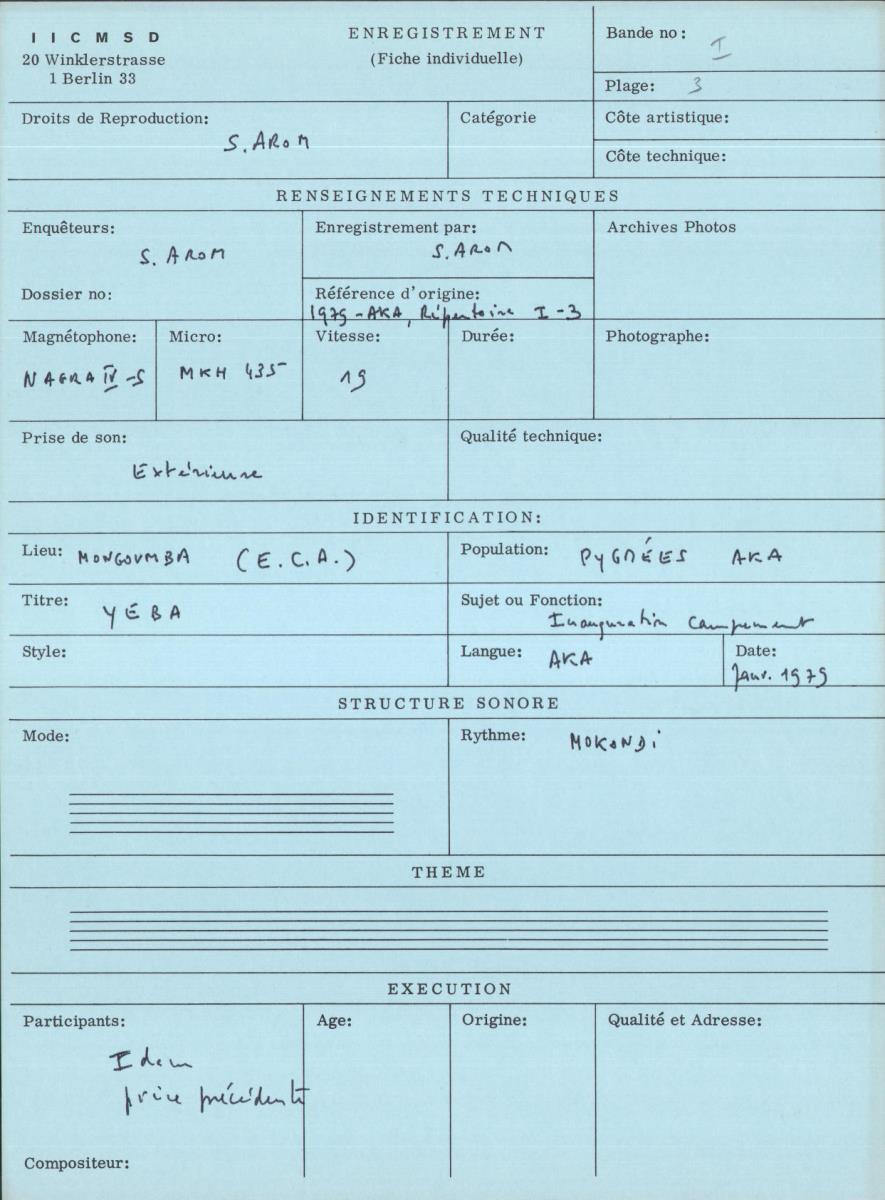 I I C M S D
20 Winklerstrasse
1 Berlin 33
ENREGISTREMENT
(Fiche individuelle)
Bande no: I
Plage: 3
Droits de Reproduction:
S. AROM
Catégorie
Côte artistique:
Côte technique:
RENSEIGNEMENTS TECHNIQUES
Enquêteurs:
S. AROM
Dossier no:
Enregistrement par:
S. AROM
Référence d'origine:
1979 - AKA, Répertoire I-3
Archives Photos
Magnétophone:
NAGRA IV-S
Micro:
MKH 435
Vitesse:
19
Durée:
Photographe:
Prise de son:
Extérieure
Qualité technique:
IDENTIFICATION:
Lieu: MONGOUMBA (E.C.A.)
Population: PYGMÉES AKA
Titre: YÉBA
Sujet ou Fonction:
Inauguration Campement
Style:
Langue: AKA
Date:
Janv. 1979
STRUCTURE SONORE
Mode:
Rythme: MOKONDI
THEME
EXECUTION
Participants:
Idem
pièce précédente
Age:
Origine:
Qualité et Adresse:
Compositeur: